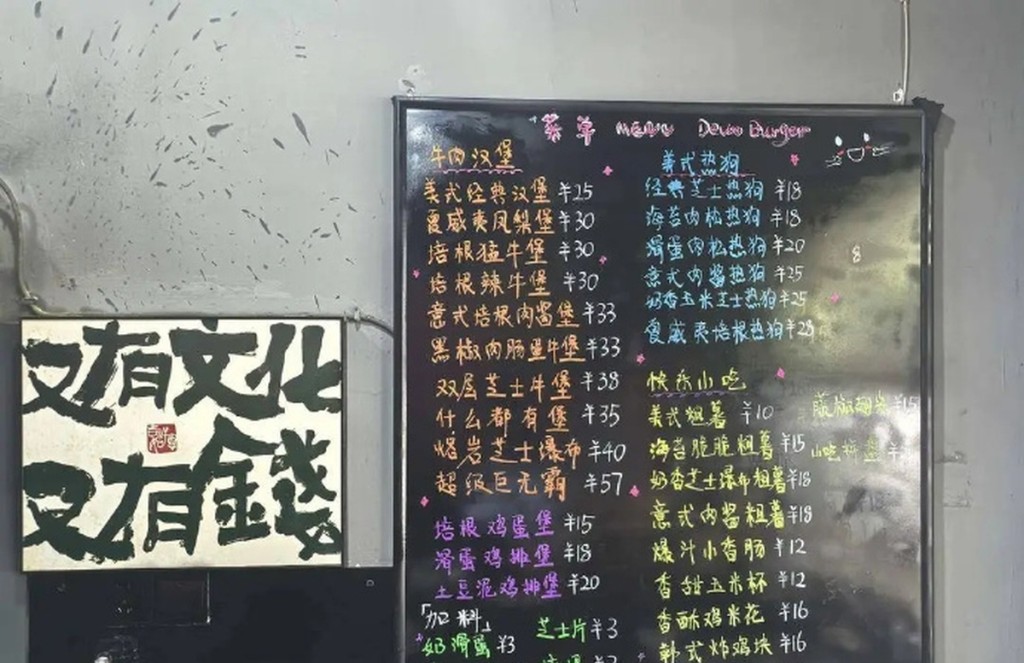 又有文化
又有錢
菜单 MENU Devo Burger
牛肉汉堡
美式经典汉堡 ¥25
夏威夷凤梨堡 ¥30
培根猛牛堡 ¥30
培根辣牛堡 ¥30
意式培根肉酱堡 ¥33
黑椒肉肠蛋牛堡 ¥33
双层芝士牛堡 ¥38
什么都有堡 ¥35
熔岩芝士瀑布 ¥40
超级巨无霸 ¥57
培根鸡蛋堡 ¥15
滑蛋鸡排堡 ¥18
土豆泥鸡排堡 ¥20
「加料」
奶滑蛋 ¥3
芝士片 ¥3
美式热狗
经典芝士热狗 ¥18
海苔肉松热狗 ¥18
滑蛋肉松热狗 ¥20
意式肉酱热狗 ¥25
奶香玉米芝士热狗 ¥25
夏威夷培根热狗 ¥28
8
快乐小吃
美式粗薯 ¥10
海苔脆脆粗薯 ¥15
奶香芝士瀑布粗薯 ¥18
意式肉酱粗薯 ¥18
爆汁小香肠 ¥12
香甜玉米杯 ¥12
香酥鸡米花 ¥16
韩式炸鸡块 ¥16
¥15
小吃拼盘